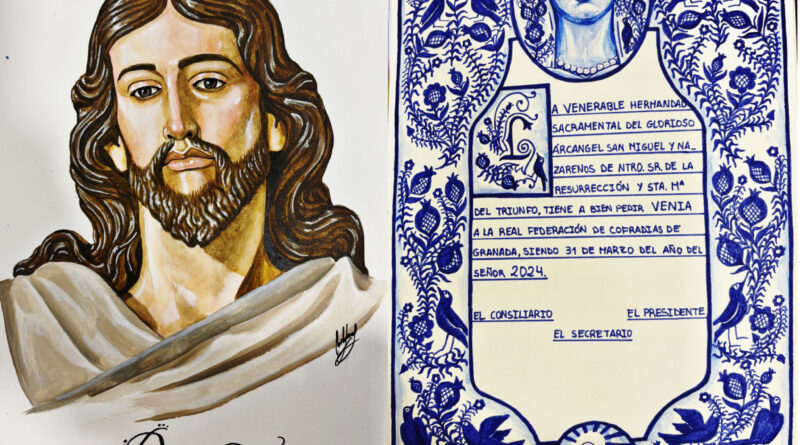 LA VENERABLE HERMANDAD
SACRAMENTAL DEL GLORIOSO
ARCANGEL SAN MIGUEL Y NA_
ZARENOS DE NTRO. SR. DE LA
RESURRECCIÓN Y STA. Mª
DEL TRIUNFO, TIENE A BIEN PEDIR VENIA
A LA REAL FEDERACIÓN DE COFRADIAS DE
GRANADA, SIENDO 31 DE MARZO DEL AÑO DEL
SEÑOR 2024.
EL CONSILIARIO EL PRESIDENTE
EL SECRETARIO